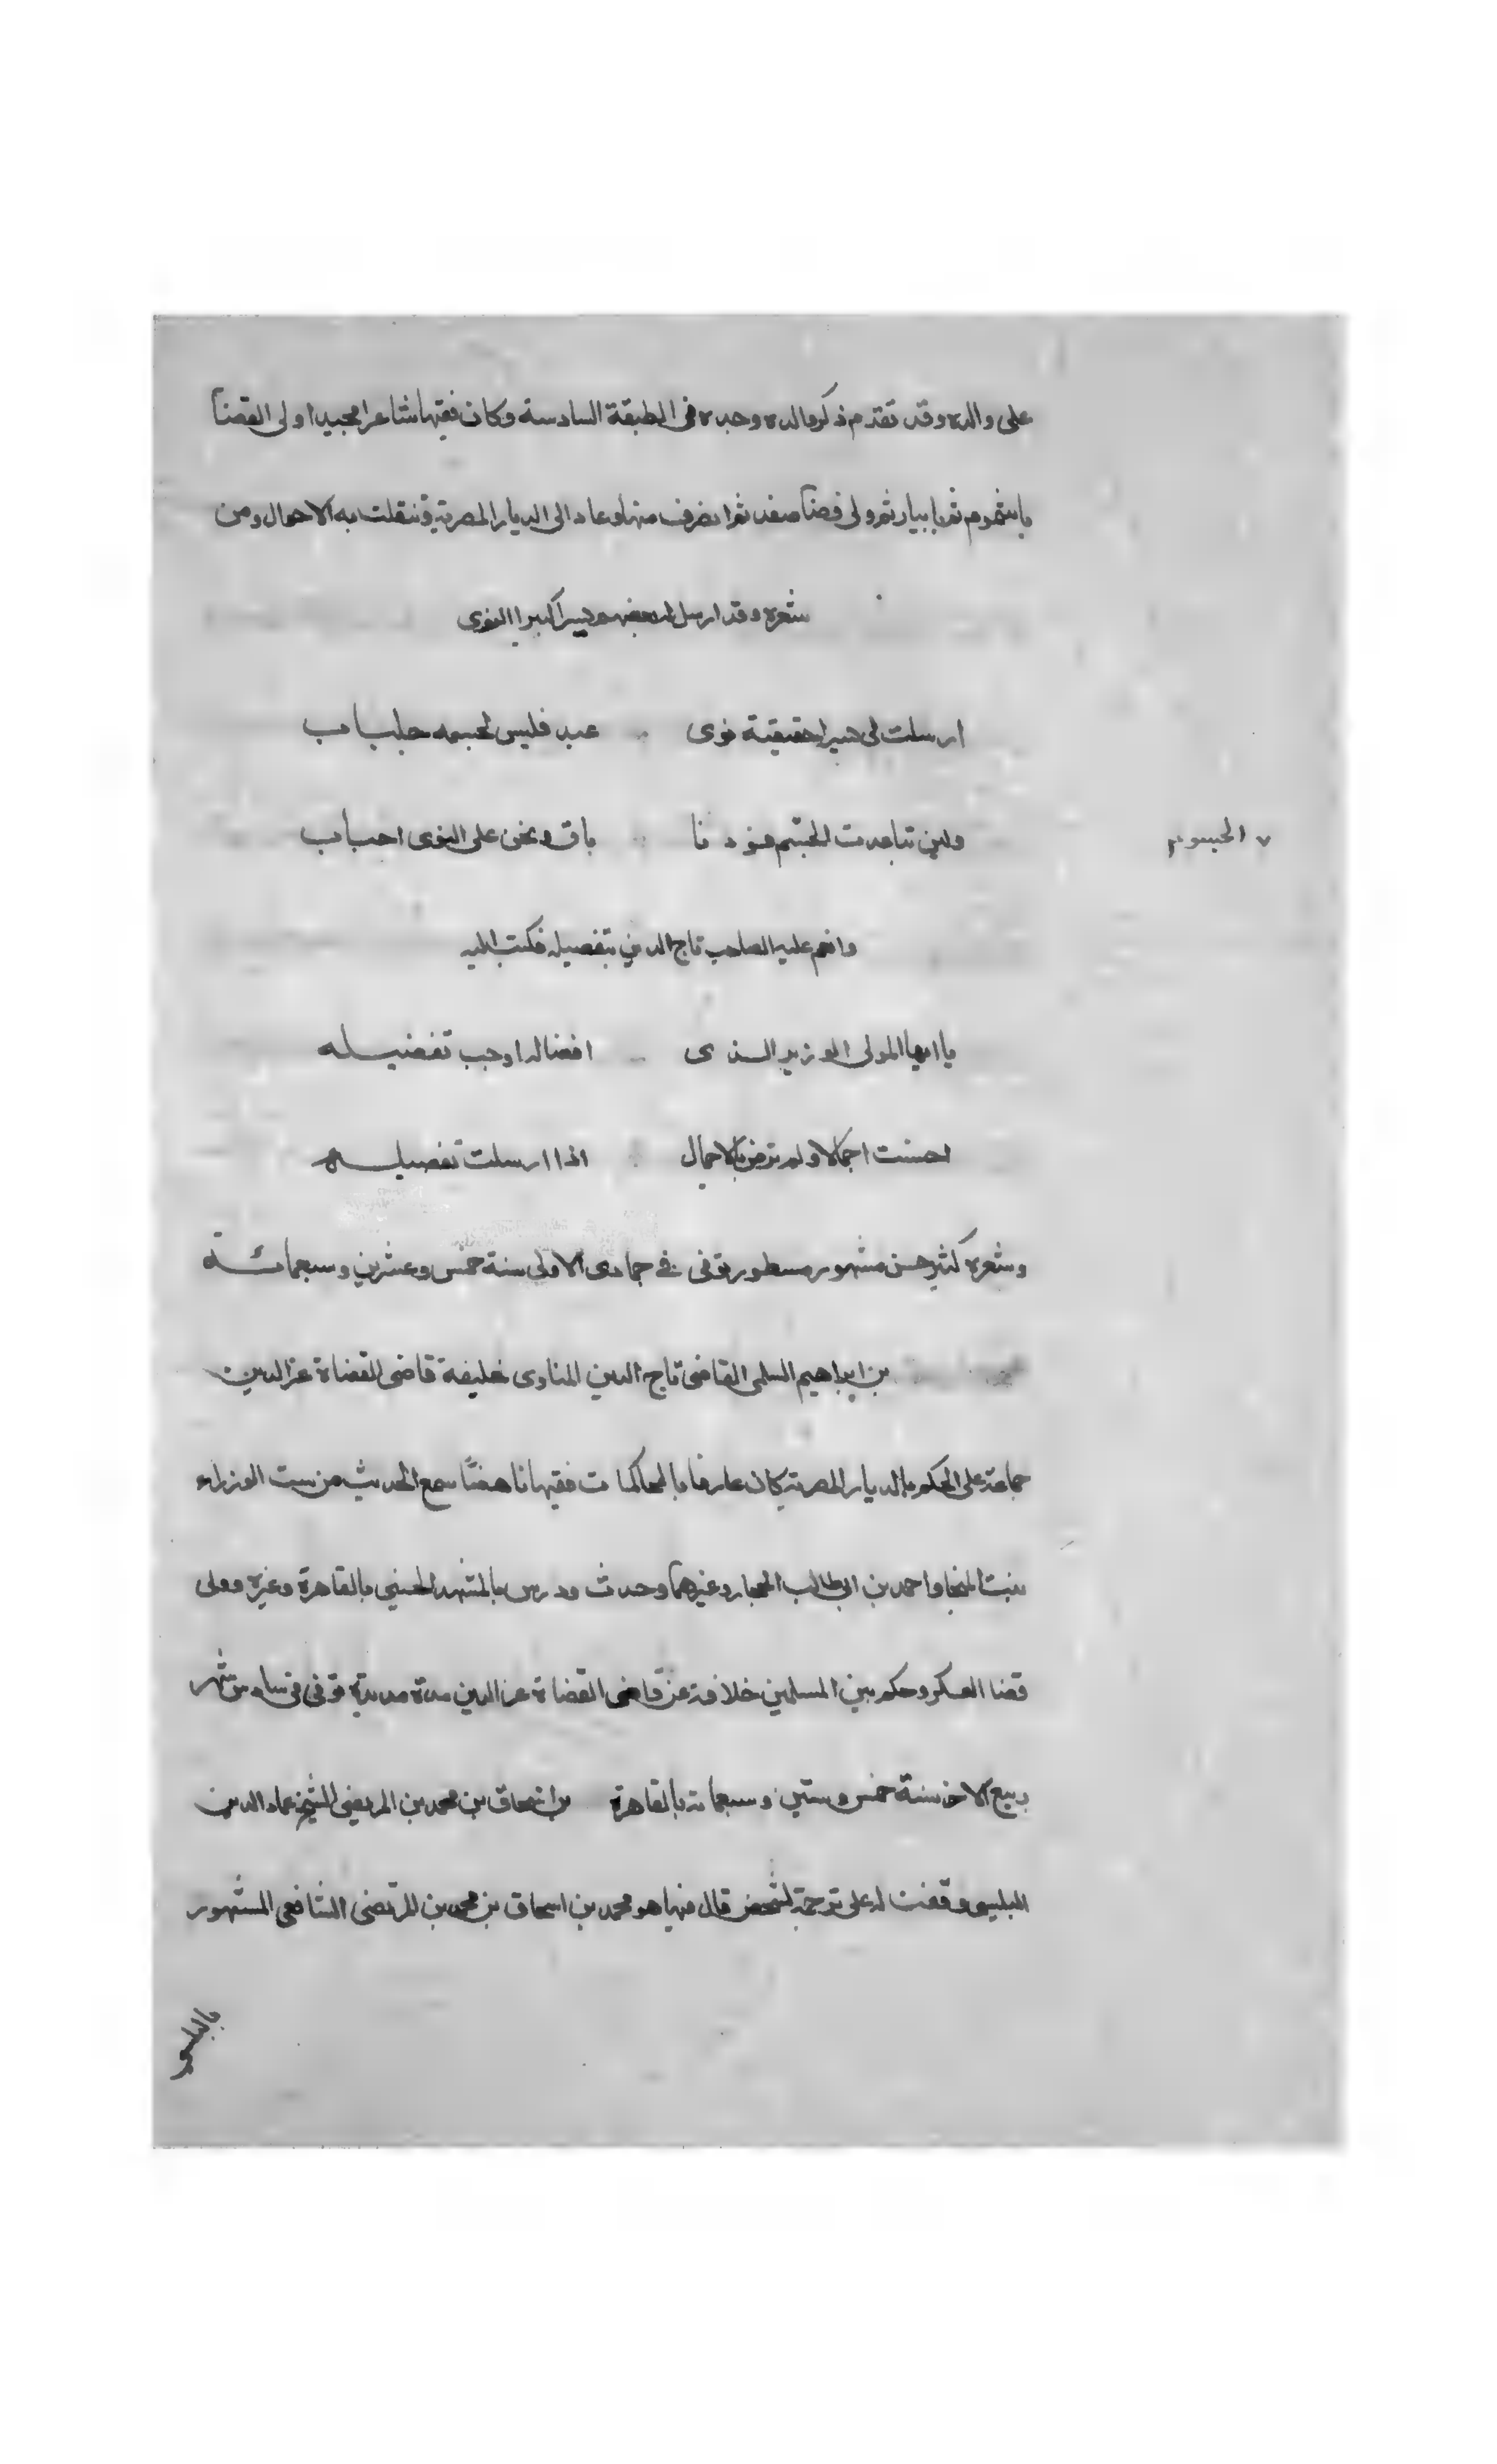 على والده وقد تقدم ذكر والده وجده فى الطبقة السادسة وكان فقيها شاعرا مجيدا ولى القضآ
باشموم ثم بابيار ثم ولى قضآ صفد ثم انصرف منها وعاد الى الديار المصرية وتنقلت به الاحوال ومن
شعره وقد ارسل له بعضهم بسرا كبير النوى
ارسلت لى بسرا حقيقية نوى عبد فليس لجسمه جلباب
ولئن تباعدت الجسم فودنا باق ونحن على النوى احباب
٧ الجسوم
وانعم عليه الصاحب تاج الدين بتفصيله فكتب اليه
يا ايها المولى الوزير الذى افضاله اوجب تفضيله
احسنت اجمالا ولم ترض بالاجمال اذا ارسلت تفصيله
وشعره كثير حسن مشهور مسطور توفى فى جمادى الاولى سنة خمس وعشرين وسبعمائة
بن ابراهيم السلمى القاضى تاج الدين المناوى خليفة قاضى القضاة عز الدين
جماعة على الحكم بالديار المصرية كان عارفا بالمحاكمات فقيها ناهضًا سمع الحديث من ست الوزراء
بنت المنجا واحمد بن ابى طالب الحجار وغيرهما وحدث ودرس بالمشهد الحسينى بالقاهرة وغيره وولى
قضا العسكر وحكم بين المسلمين خلافة عن قاضى القضاة عز الدين مدة مديدة توفى فى سادس شهر
ربيع الاخر سنة خمس وستين وسبعماية بالقاهرة بن اسحاق بن محمد بن المرتضى الشيخ عماد الدين
البلبيسى وقفت له على ترجمة لشخص قال فيها هو محمد بن اسحاق بن محمد بن المرتضى الشافعى المشهور
بالبلبيسى